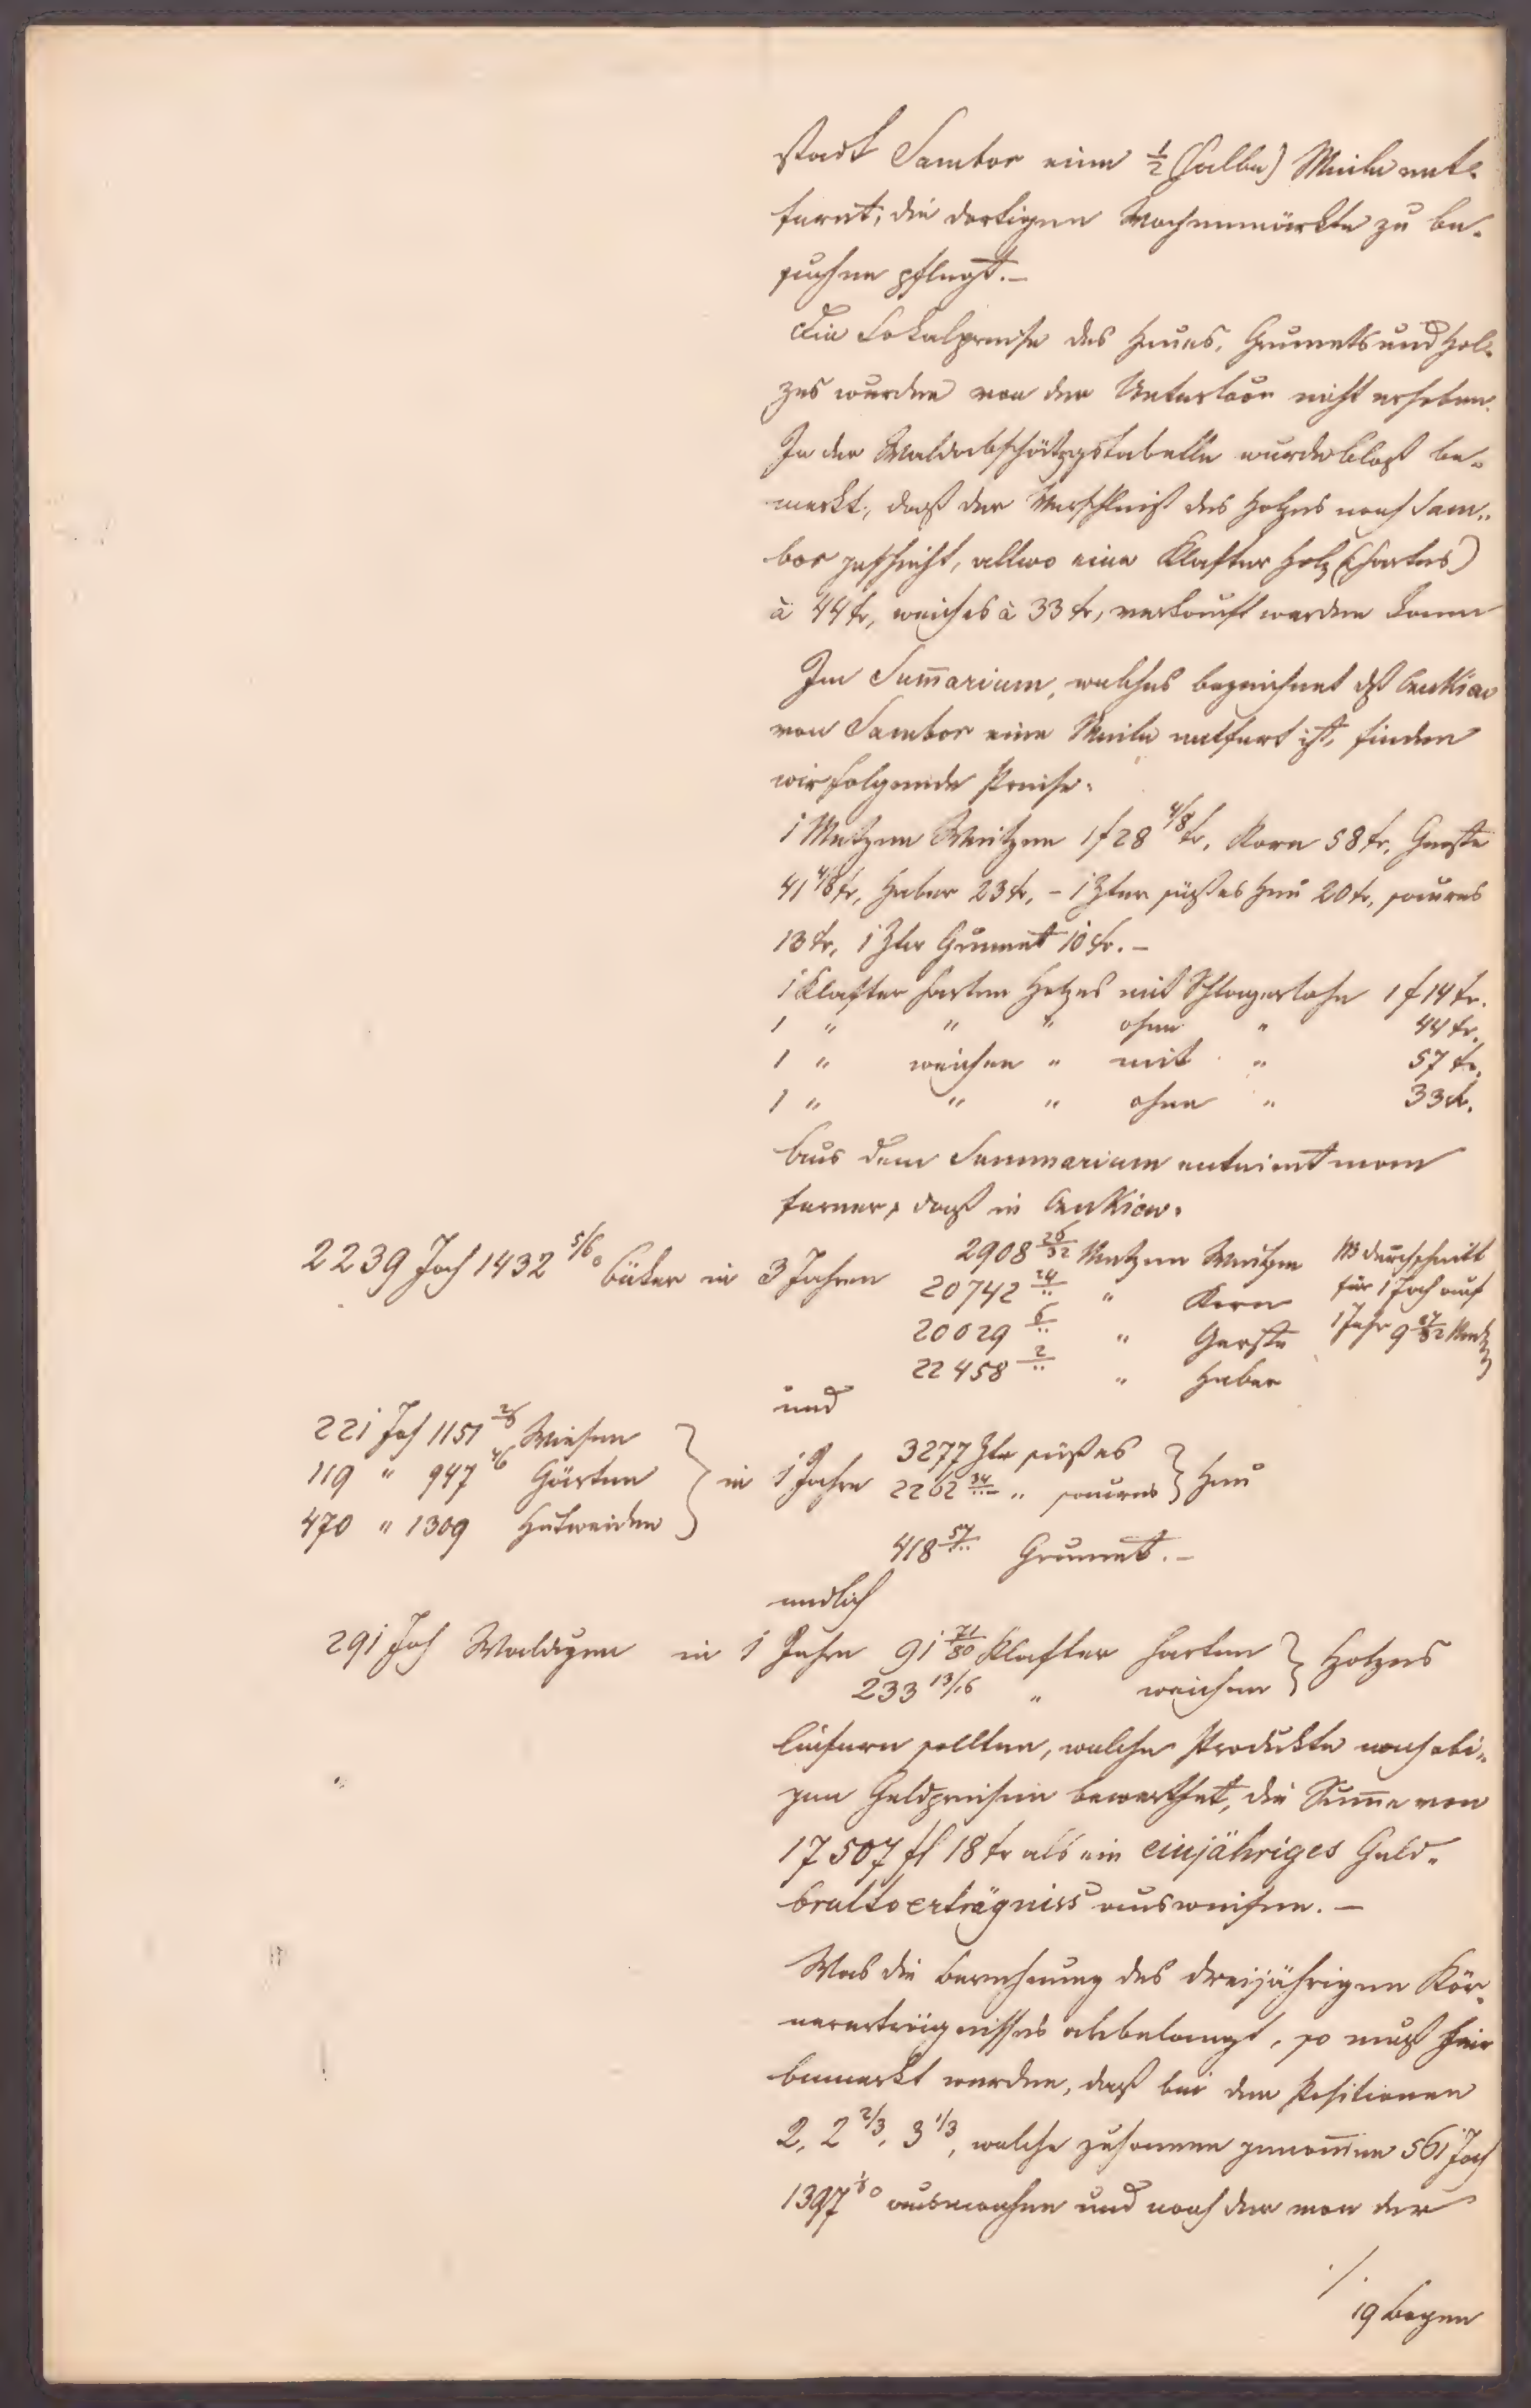 stadt Sambor eine ½ (halbe) Meile ent-
fernt, die dortigen Wochenmärkte zu be-
suchen pflegt. –
Die Lokalpreise des Heues, Grumets und Hol-
zes wurden von der Unterkoon nicht erhoben.
In der Waldabschätzgstabelle wurde bloß be-
merkt, daß der Verschleiß des Holzes nach Sam-
bor geschieht, allwo eine Klafter Holz (hartes)
à 44 kr, weiches à 33 kr, verkauft werden kann
Im Sum̄arium, welches bezeichnet dß
von Sambor eine Meile entfert ist, finden
wir folgende Preise:
1 Metzen Weitzen 1 f 28 4/8 kr, Korn 58 kr, Gerste
41 4/8 kr, Haber 23 kr, – 1 Ztner süßes Heu 20 kr, saures
13 kr, 1 Ztr Grumet 10 kr. –
1 Klafter harten Holzes mit Schlagerlohn 1 f 14 kr.
1 " " " ohne " 44 kr.
1 " weichen " mit " 57 kr.
1 " " " ohne " 33 kr.
Aus dem Summarium entnimt man
ferner, daß in
2239 Joch 1432 5/6 ° Äcker in 3 Jahren 2908 26/32 Metzen Weitzen
20742 24/.. " Korn
20029 6/.. " Gerste
22458 2/.. " Haber
im Durchschnitt
für 1 Joch auf
1 Jahr 9 27/32 Metz
und
221 Joch 1151 2/6 Wiesen
119 " 947 4/6 Gärten
470 " 1309 Hutweiden
in 1 Jahre 3277 Ztr süßes
2262 34/.. " saures } Heu
418 57/.. Grumet. –
endlich
291 Joch Waldgen in 1 Jahre 91 71/80 Klafter harten
233 13/16 " weichen } Holzes
liefern sollten, welche Produkte nach obi-
gen Geldpreisen bewerthet, die Sum̄e von
17507 fl 18 kr als ein einjähriges Geld-
bruttoerträgniss ausweisen. –
Was die Berechnung des dreijährigen Kör-
nererträgnisses anbelangt, so muß hier
bemerkt werden, daß bei den Positionen
2, 2 2/3, 3 1/3, welche zusammen genom̄en 561 Joch
1397 ° ausmachen und nach der von der
./.
19 Bogen